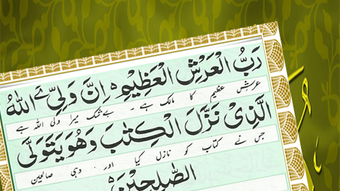 رَبُّ الْعَرْشِ الْعَظِيْمِ ۰ اِنَّ وَلِيِّ ےَ اللّٰهُ
عرش عظیم کا مالک ہے ۰ بےشک میرا ولی اللہ ہے
الَّذِىْ نَزَّلَ الْكِتٰبَ وَهُوَ يَتَوَلَّى
جس نے کتاب کو نازل کیا اور وہی صالحین
الصّٰلِحِيْنَ ۰